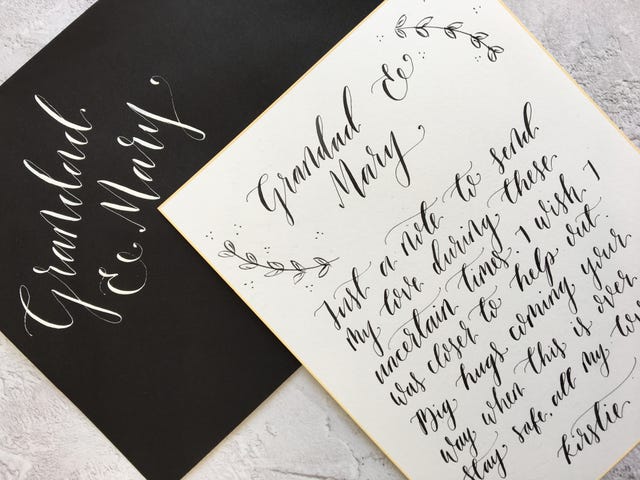 Grandad
& Mary,
Grandad &
Mary,
Just a note to send
my love during these
uncertain times, I wish I
was closer to help out.
Big hugs coming your
way, when this is over.
Stay safe, all my love
Kirstie